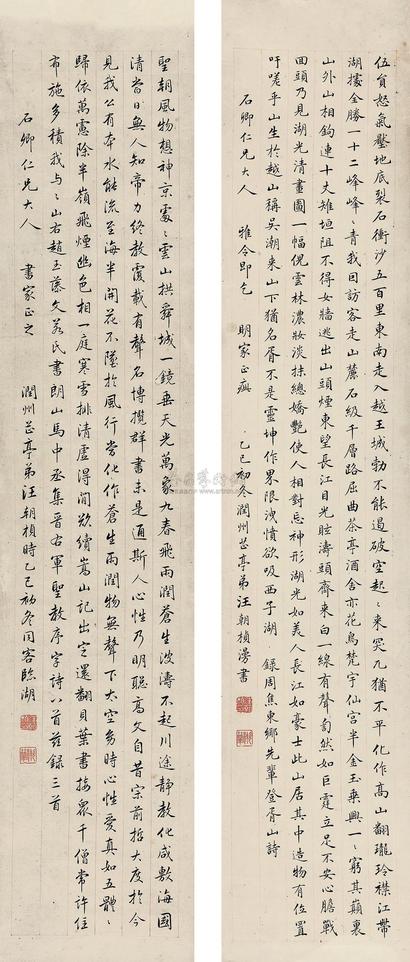 伍員怒氣壓地底裂石衝沙五百里東南走入越王城勃不能遏破空起起來突兀猶不平化作高山翻瓏玲襟江帶
湖據全勝一十二峰峰峰青我回訪客走山麓石級千層路屈曲茶亭酒舍亦花鳥梵宇仙宮半金玉乘興一一窮其巔裏
山外山相鉤連十丈雉垣阻不得女牆逃出山頭煙東望長江目光眩濤頭齊來白一線有聲訇然如巨霆立足不安心膽戰
回頭乃見湖光清畫圖一幅倪雲林濃妝淡抹總嬌艷使人相對忘神形湖光如美人長江如豪士此山居其中造物有位置
吁嗟乎山生於越山稱吳潮來山下猶名胥不是靈坤作界限洩憤欲吸西子湖 錄周焦東鄉先輩登胥山詩
石卿仁兄大人 雅令即乞 明家正瘼 乙巳初冬潤州芷亭弟汪朝楨漫書
聖朝風物想神京處處雲山拱舜城一鏡垂天光萬象九春飛雨潤蒼生波濤不起川途靜教化咸敷海國
清當日無人知帝力終教覆載有聲名博攬群書未是通斯人心性乃明聰高文自昔宗前哲大度於今
見我公有本水能流至海半開花不墜於風行當化作蒼生雨潤物無聲下太空多時心性愛真如五體體
歸依萬慮除半嶺飛煙幽色相一庭寒雪排清虛得閒欲續嵩山記出定還翻貝葉書接眾千僧常許住
布施多積我與與山右趙玉藻文若氏書朗山馬中丞集晉右軍聖教序字詩八首茲錄三首
石卿仁兄大人 書家正之 潤州芷亭弟汪朝楨時乙巳初冬同客臨湖